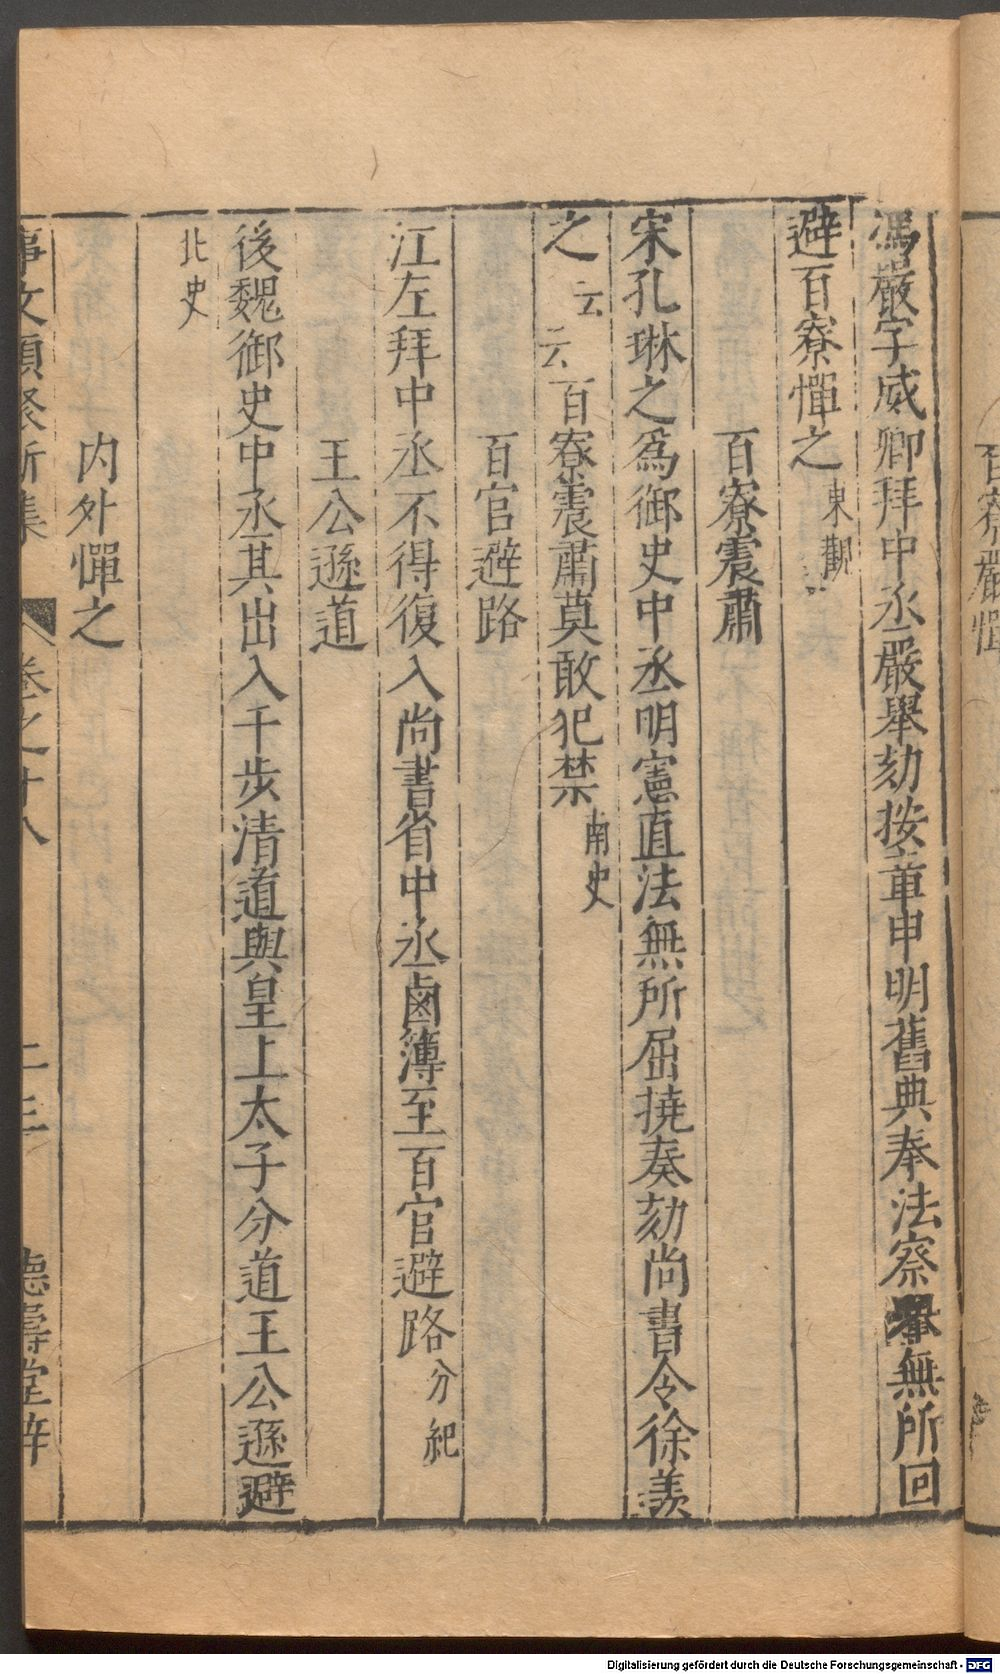 百寮嚴憚
馮嚴字威卿拜中丞嚴舉劾按章申明舊典奉法察舉無所回
避百寮憚之東觀
百寮震肅
宋孔琳之為御史中丞明憲直法無所屈撓奏劾尚書令徐羨
之云云百寮震肅莫敢犯禁南史
百官避路
江左拜中丞不得復入尚書省中丞鹵簿至百官避路分紀
王公遜道
後魏御史中丞其出入千步清道與皇上太子分道王公遜避
北史
內外憚之
事文類聚新集 卷之十八 二三 德壽堂梓
Digitalisierung gefördert durch die Deutsche Forschungsgemeinschaft - DFG